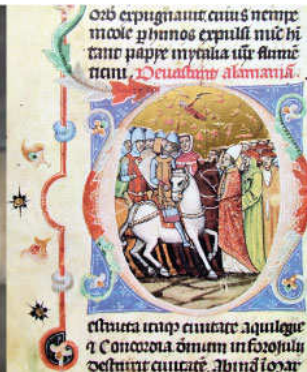 orb expugnauit cuius nempe
incole phunos expulsi nuc hi
tant papye mytalia iuxta flumē
ticini. Deuastant alamania.
estructa itaq ciuitate aquilegie
⁊ Concordia omnem in foroiuly
destruxit ciuitatē. Ab inde